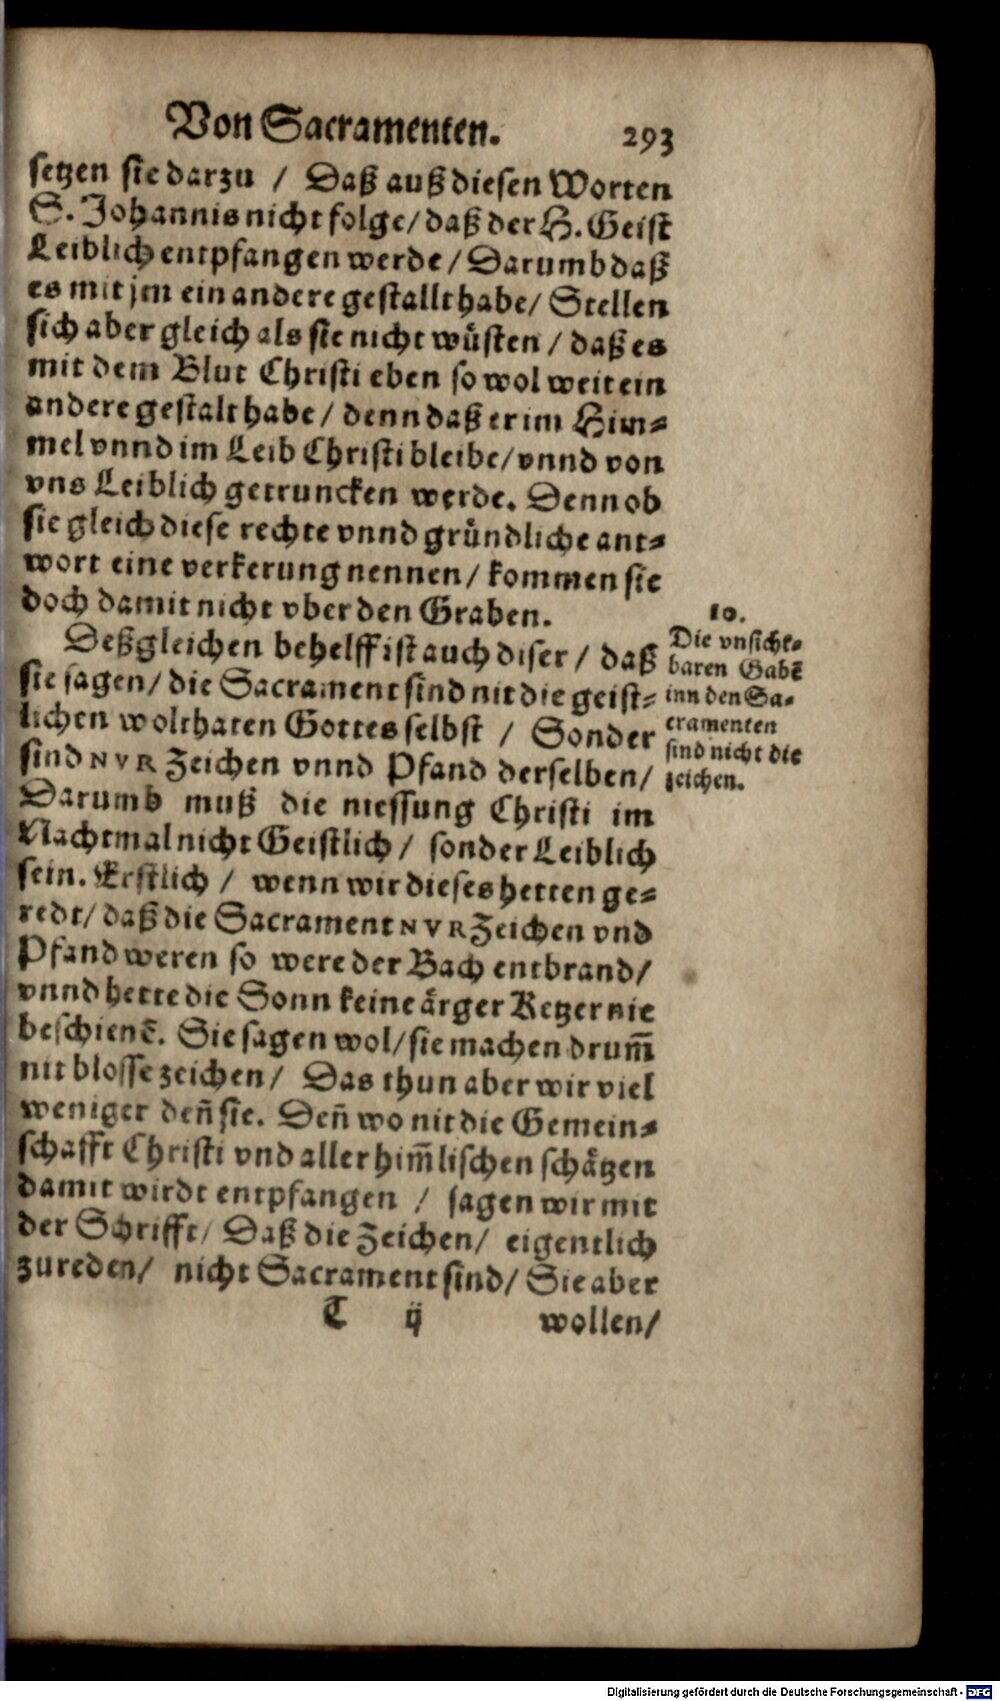 Von Sacramenten. 293
setzen sie darzu / Daß auß diesen Worten
S. Johannis nicht folge / daß der H. Geist
Leiblich entpfangen werde / Darumb daß
es mit jm ein andere gestallt habe / Stellen
sich aber gleich als sie nicht wüsten / daß es
mit dem Blut Christi eben so wol weit ein
andere gestalt habe / denn daß er im Him⸗
mel vnnd im Leib Christi bleibe / vnnd von
vns Leiblich getruncken werde. Denn ob
sie gleich diese rechte vnnd gründliche ant⸗
wort eine verkerung nennen / kommen sie
doch damit nicht vber den Graben.
Deßgleichen behelff ist auch diser / daß
sie sagen / die Sacrament sind nit die geist⸗
lichen wolthaten Gottes selbst / Sonder
sind NVR Zeichen vnnd Pfand derselben /
Darumb muß die niessung Christi im
Nachtmal nicht Geistlich / sonder Leiblich
sein. Erstlich / wenn wir dieses hetten ge⸗
redt / daß die Sacrament NVR Zeichen vnd
Pfand weren so were der Bach entbrand /
vnnd hette die Sonn keine ärger Ketzer nie
beschienē. Sie sagen wol / sie machen drum̄
nit blosse zeichen / Das thun aber wir viel
weniger den̄ sie. Den̄ wo nit die Gemein⸗
schafft Christi vnd aller him̄lischen schätzen
damit wirdt entpfangen / sagen wir mit
der Schrifft / Daß die Zeichen / eigentlich
zureden / nicht Sacrament sind / Sie aber
T ij wollen /
10.
Die vnsicht⸗
baren Gabē
inn den Sa⸗
cramenten
sind nicht die
zeichen.
Digitalisierung gefördert durch die Deutsche Forschungsgemeinschaft - DFG